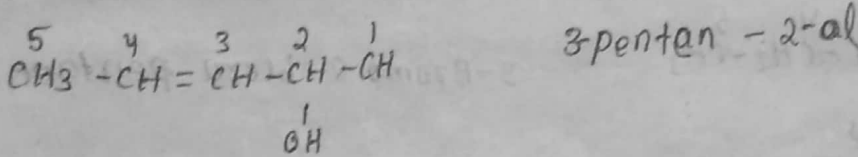 5 4 3 2 1
CH3 - CH = CH - CH - CH 3-pentan - 2-al
|
OH